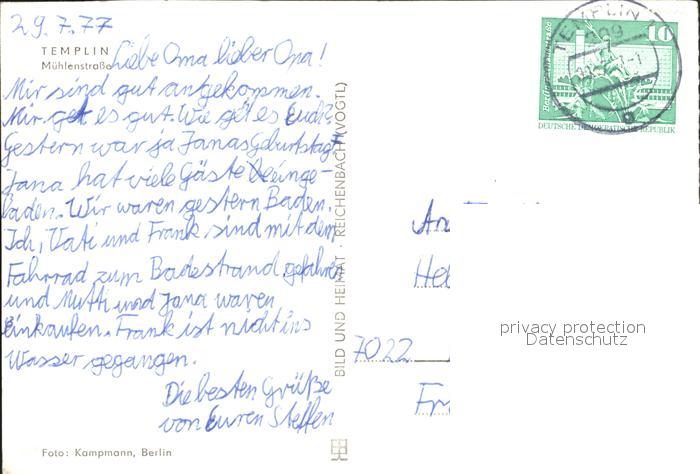 29.7.77
TEMPLIN
Mühlenstraße
Liebe Oma lieber Opa!
Mir sind gut angekommen.
Mir get es gut. Wie get es Euch?
Gestern war ja Janas Geburtstag.
Jana hat viele Gäste einge-
laden. Wir waren gestern Baden.
Ich, Vati und Frank sind mit dem
Fahrrad zum Badestrand gefahren
und Mutti und Jana waren
einkaufen. Frank ist nicht ins
Wasser gegangen.
Die besten Grüße
von Euren Steffen
Foto: Kampmann, Berlin
BILD UND HEIMAT · REICHENBACH (VOGTL)
TEMPLIN
209
10
DEUTSCHE DEMOKRATISCHE REPUBLIK
An
7022
Fr
privacy protection
Datenschutz